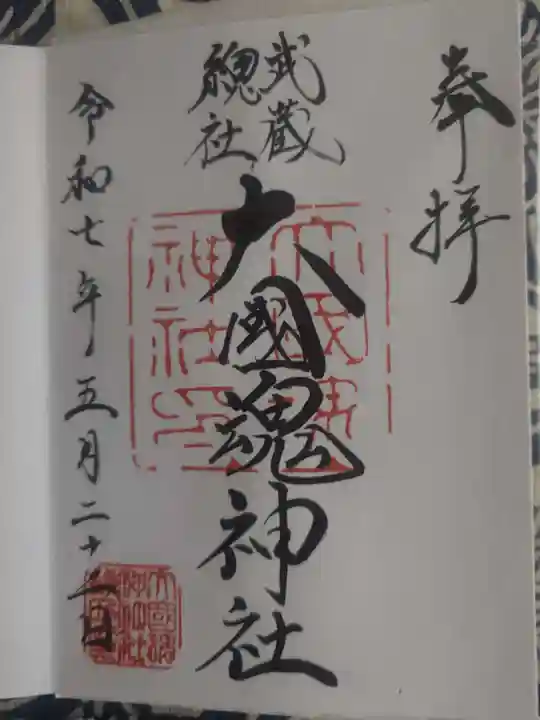 奉拝
武蔵
總社
大國魂神社
令和七年五月二十五日
大國魂
神社印